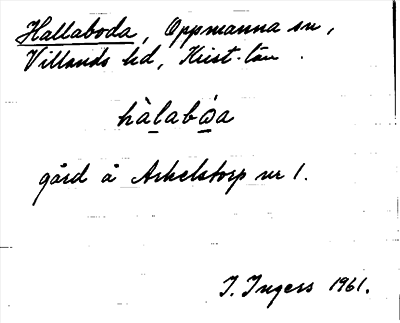 Hallaboda, Oppmanna sn,
Villands hd, Krist. län.
hàlabὼa
gård å Arkelstorp nr 1.
I. Ingers 1961.